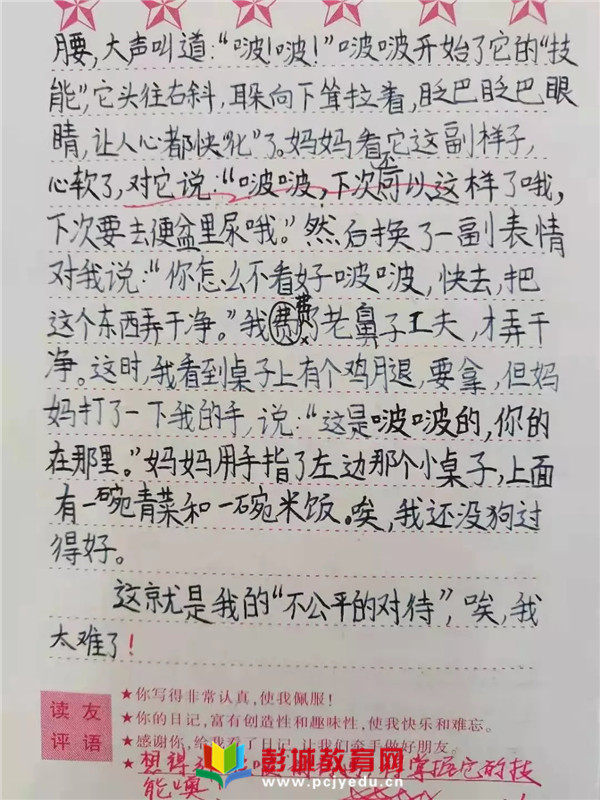 腰,大声叫道:“啵!啵!”啵啵开始了它的“技
能”,它头往右斜,耳朵向下耷拉着,眨巴眨巴眼
睛,让人心都快“化”了。妈妈看它这副样子,
心软了,对它说:“啵啵,下次不可以这样了哦,
下次要去便盆里尿哦。”然后换了一副表情
对我说:“你怎么不看好啵啵,快去,把
这个东西弄干净。”我费了老鼻子工夫,才弄干
净。这时,我看到桌子上有个鸡腿,要拿,但妈
妈打了一下我的手,说:“这是啵啵的,你的
在那里。”妈妈用手指了左边那个小桌子,上面
有一碗青菜和一碗米饭。唉,我还没狗过
得好。
这就是我的“不公平的对待”,唉,我
太难了!
读友
评语
★你写得非常认真,使我佩服!
★你的日记,富有创造性和趣味性,使我快乐和难忘。
★感谢你,给我看了日记,让我们牵手做好朋友。
★想得
掌握它的技
能噢
彭城教育网
www.pcjyedu.com